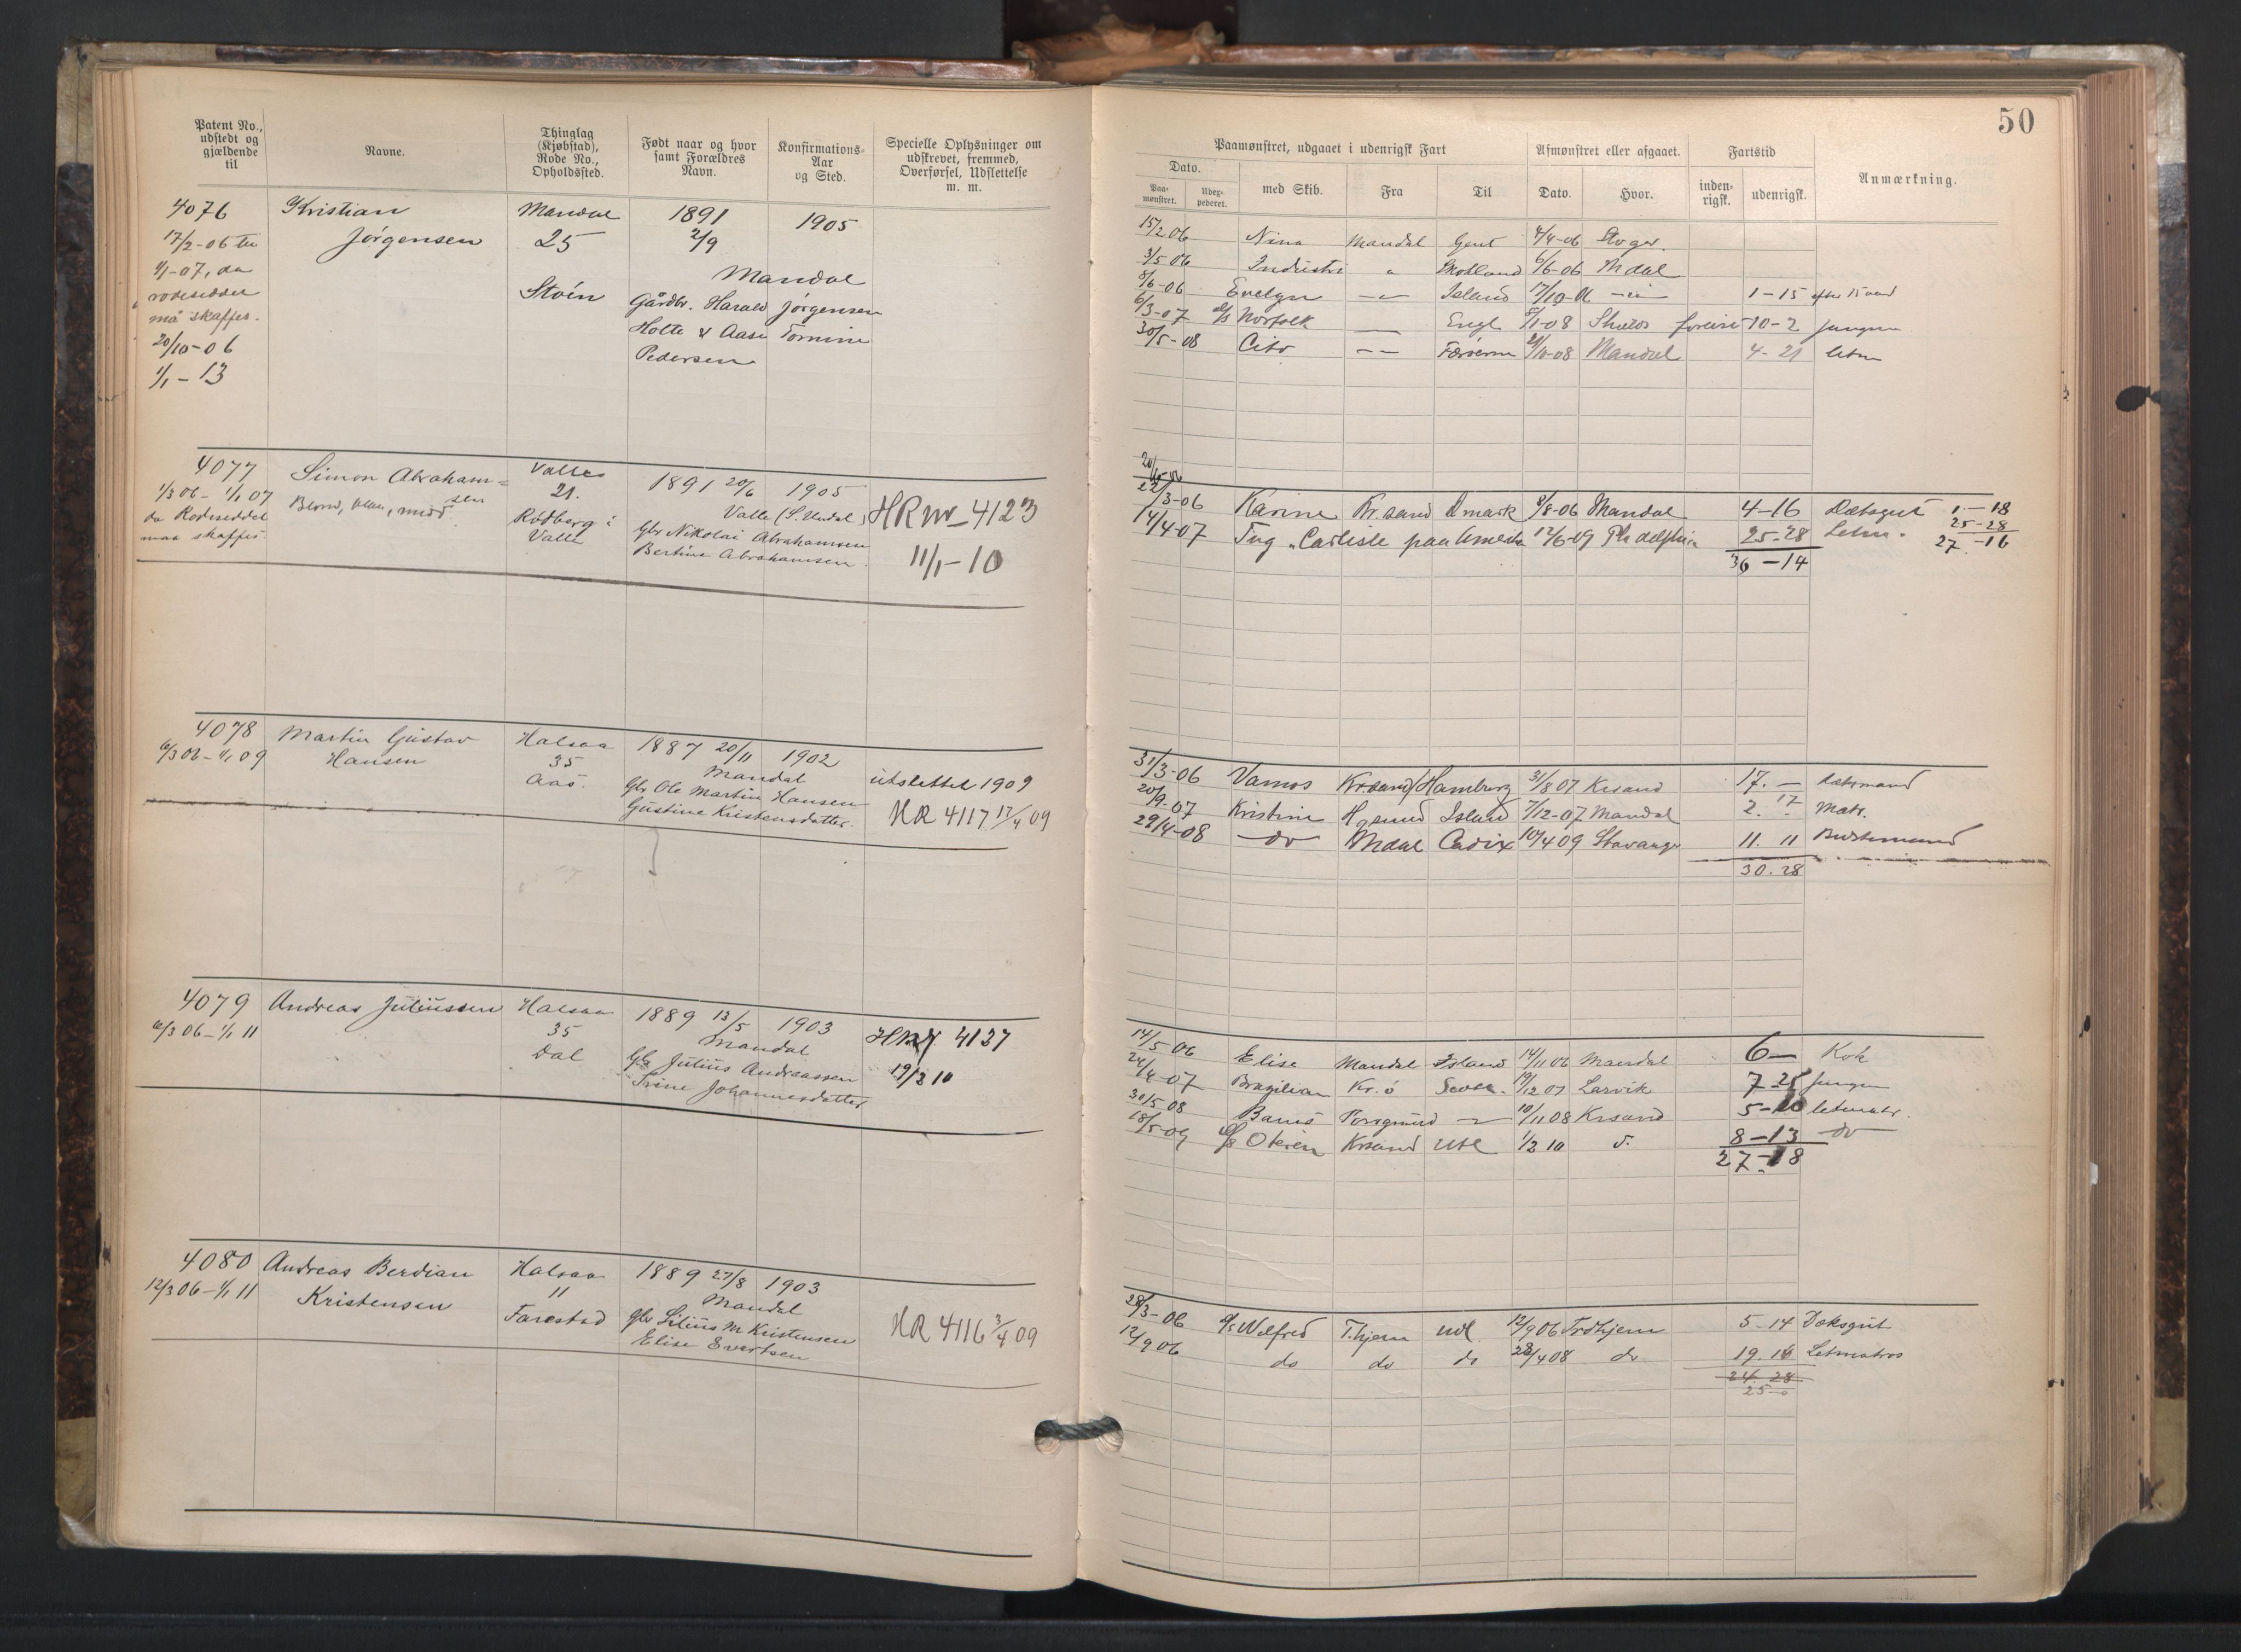 50
Patent No., udstedt og gjældende til
Navne.
Thinglag (Kjøbstad), Rode No., Opholdssted.
Født naar og hvor samt Forældres Navn.
Konfirmations-Aar og Sted.
Specielle Oplysninger om udskrevet, fremmed, Overførsel, Udslettelse m. m.
Paamønstret, udgaaet i udenrigsk Fart
Afmønstret eller afgaaet.
Fartstid
Anmærkning.
Dato.
Paa-mønstret.
med Skib.
Fra
Til
Dato.
Hvor.
inden-rigsk.
udenrigsk.
4076 Kristian Mandal 1891 1905
17/2-06 til Jørgensen 25 2/9
1/1-07, da Mandal
rodeseddel Støin Gårdbr. Harald Jørgensen
må skaffes. Holte & Aase Tomine
20/10-06 Pedersen
1/1-13
15/2 06 Nina Mandal Gent 4/4-06
3/5 06 Industri " Skotland 6/6-06 Mdal
8/6-06 Evelyn Island 17/10-06 1-15
6/3-07 Norfolk Engl 5/1-08 10-2 jungm
30/5-08 Cito Færøerne 21/10-08 Mandal 4-21 letm
4077 Simon Abraham= Valle 1891 20/6 1905
1/3 06 - 1/1 07 sen 21. Valle (S. Undal) HR nr 4123
da Rodeseddel Blond, blaa, mid Rødberg i Gbr Nikolai Abrahamsen
maa skaffes Valle Bertine Abrahamsen. 11/1-10
20/10-06
22/3-06 Karine Kr.sand Dmark 8/8-06 Mandal 4-16 Dæksgut 1-18
14/4-07 Tug Carlisle paa Amerika 12/6-09 Phadelphia 25-28 Letm. 25-28
36-14 27-16
4078 Martin Gustav Halsaa 1887 20/11 1902
6/3 06 - 1/1 09 Hansen 35 Mandal utslettet 1909
Aas. Gbr Ole Martin Hansen
Gustine Kristensdatter. HR 4117 17/4 09
31/3-06 Vamos Kr.sand Hamburg 31/8 07 Krsand 17.-
20/9-07 Kristine Island 7/12-07 Mandal 2. 17 Matr.
29/4-08 do Mdal Cadix 10/4 09 Stavanger 11. 11
30. 28
4079 Andreas Juliussen Halsaa 1889 13/5 1903
6/3 06 - 1/1 11 35 Mandal 4137
Dal Gbr Julius Andreassen 19/2 10
Trine Johannesdatter
14/5 06 Elise Mandal Island 14/11 06 Mandal 6- Kok
24/4-07 Brazilian Kr.ø 19/12 07 Larvik 7 25 Jungm
30/5 08 Porsgrund 10/11 08 Krsand 5-10 letmatr.
18/5-09 Krsand 1/2 10 8-13 do
27-18
4080 Andreas Berdian Halsaa 1889 27/8 1903
12/3 06 - 1/1 11 Kristensen 11 Mandal
Farestad Gbr Silius M Kristensen HR 4116 3/4 09
Elise Evertsen
28/3-06 Wilfred T.hjem udl 12/9 06 Trdhjem 5-14 Dæksgut
12/9 06 do do do 28/4 08 do 19. 16 Letmatros
24. 28
25-0